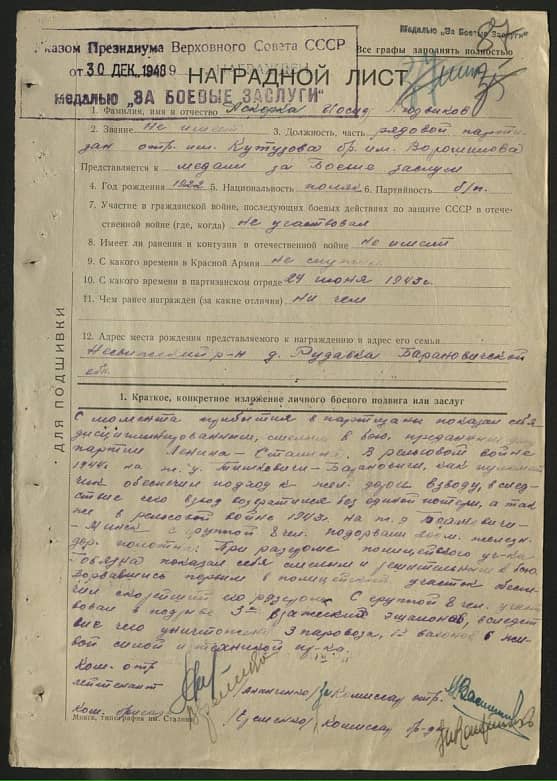 Медалью „За Боевые Заслуги“
Указом Президиума Верховного Совета СССР
Все графы заполнять полностью
от 30 ДЕК. 1948
НАГРАДНОЙ ЛИСТ
медалью „ЗА БОЕВЫЕ ЗАСЛУГИ“
1. Фамилия, имя и отчество
2. Звание Не имеет 3. Должность, часть рядовой парти-
зан отр. им. Кутузова бр. им. Ворошилова
Представляется к медали за Боевые заслуги
4. Год рождения 1922 5. Национальность поляк 6. Партийность б/п.
7. Участие в гражданской войне, последующих боевых действиях по защите СССР в отече-
ственной войне (где, когда) не участвовал
8. Имеет ли ранения и контузии в отечественной войне не имеет
9. С какого времени в Красной Армии не служил
10. С какого времени в партизанском отряде 24 июня 1943 г.
11. Чем ранее награжден (за какие отличия) ни чем
12. Адрес места рождения представляемого к награждению и адрес его семьи
Несвижский р-н д. Рудавка Барановичской
обл.
ДЛЯ ПОДШИВКИ
1. Краткое, конкретное изложение личного боевого подвига или заслуг
С момента прибытия в партизаны показал себя
дисциплинированным, смелым в бою, преданным
партии Ленина – Сталина. В рельсовой войне
на Барановичи, как
обеспечил подход к жел. дороге взводу, вслед-
ствие чего взвод возвратился без единой потери, а так
же в рельсовой войне 1943 г. на ж. д Барановичи –
– Минск с группой 8 чел. подорвали желез.
дор. полотна. При разгроме полицейского уч-ка
показал себя смелым и решительным в бою
ворвавшись первым в полицейский участок обеспе-
чил его разгром. С группой 8 чел. участ
вовал в подрыве 3х вражеских эшелонов, вследст
вие чего уничтожено 3 паровоза, вагонов с жи-
вой силой и техникой пр-ка.
Ком. отр.
лейтенант /Ананченко/ Комиссар отр.
Ком. бригады Комиссар бр-ды
Минск, типография им. Сталина